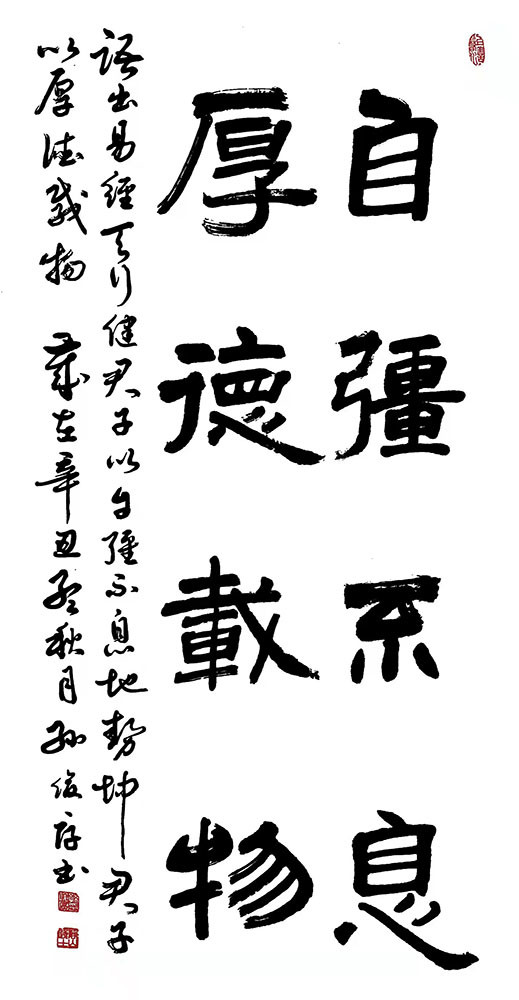 自彊不息
厚德載物
語出易經天行健君子以自彊不息地勢坤君子
以厚德載物 歲在辛丑孟秋月孫俊存书